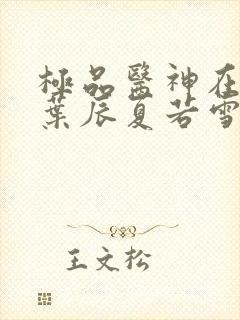 極品醫神在
葉辰夏若雪
王文松